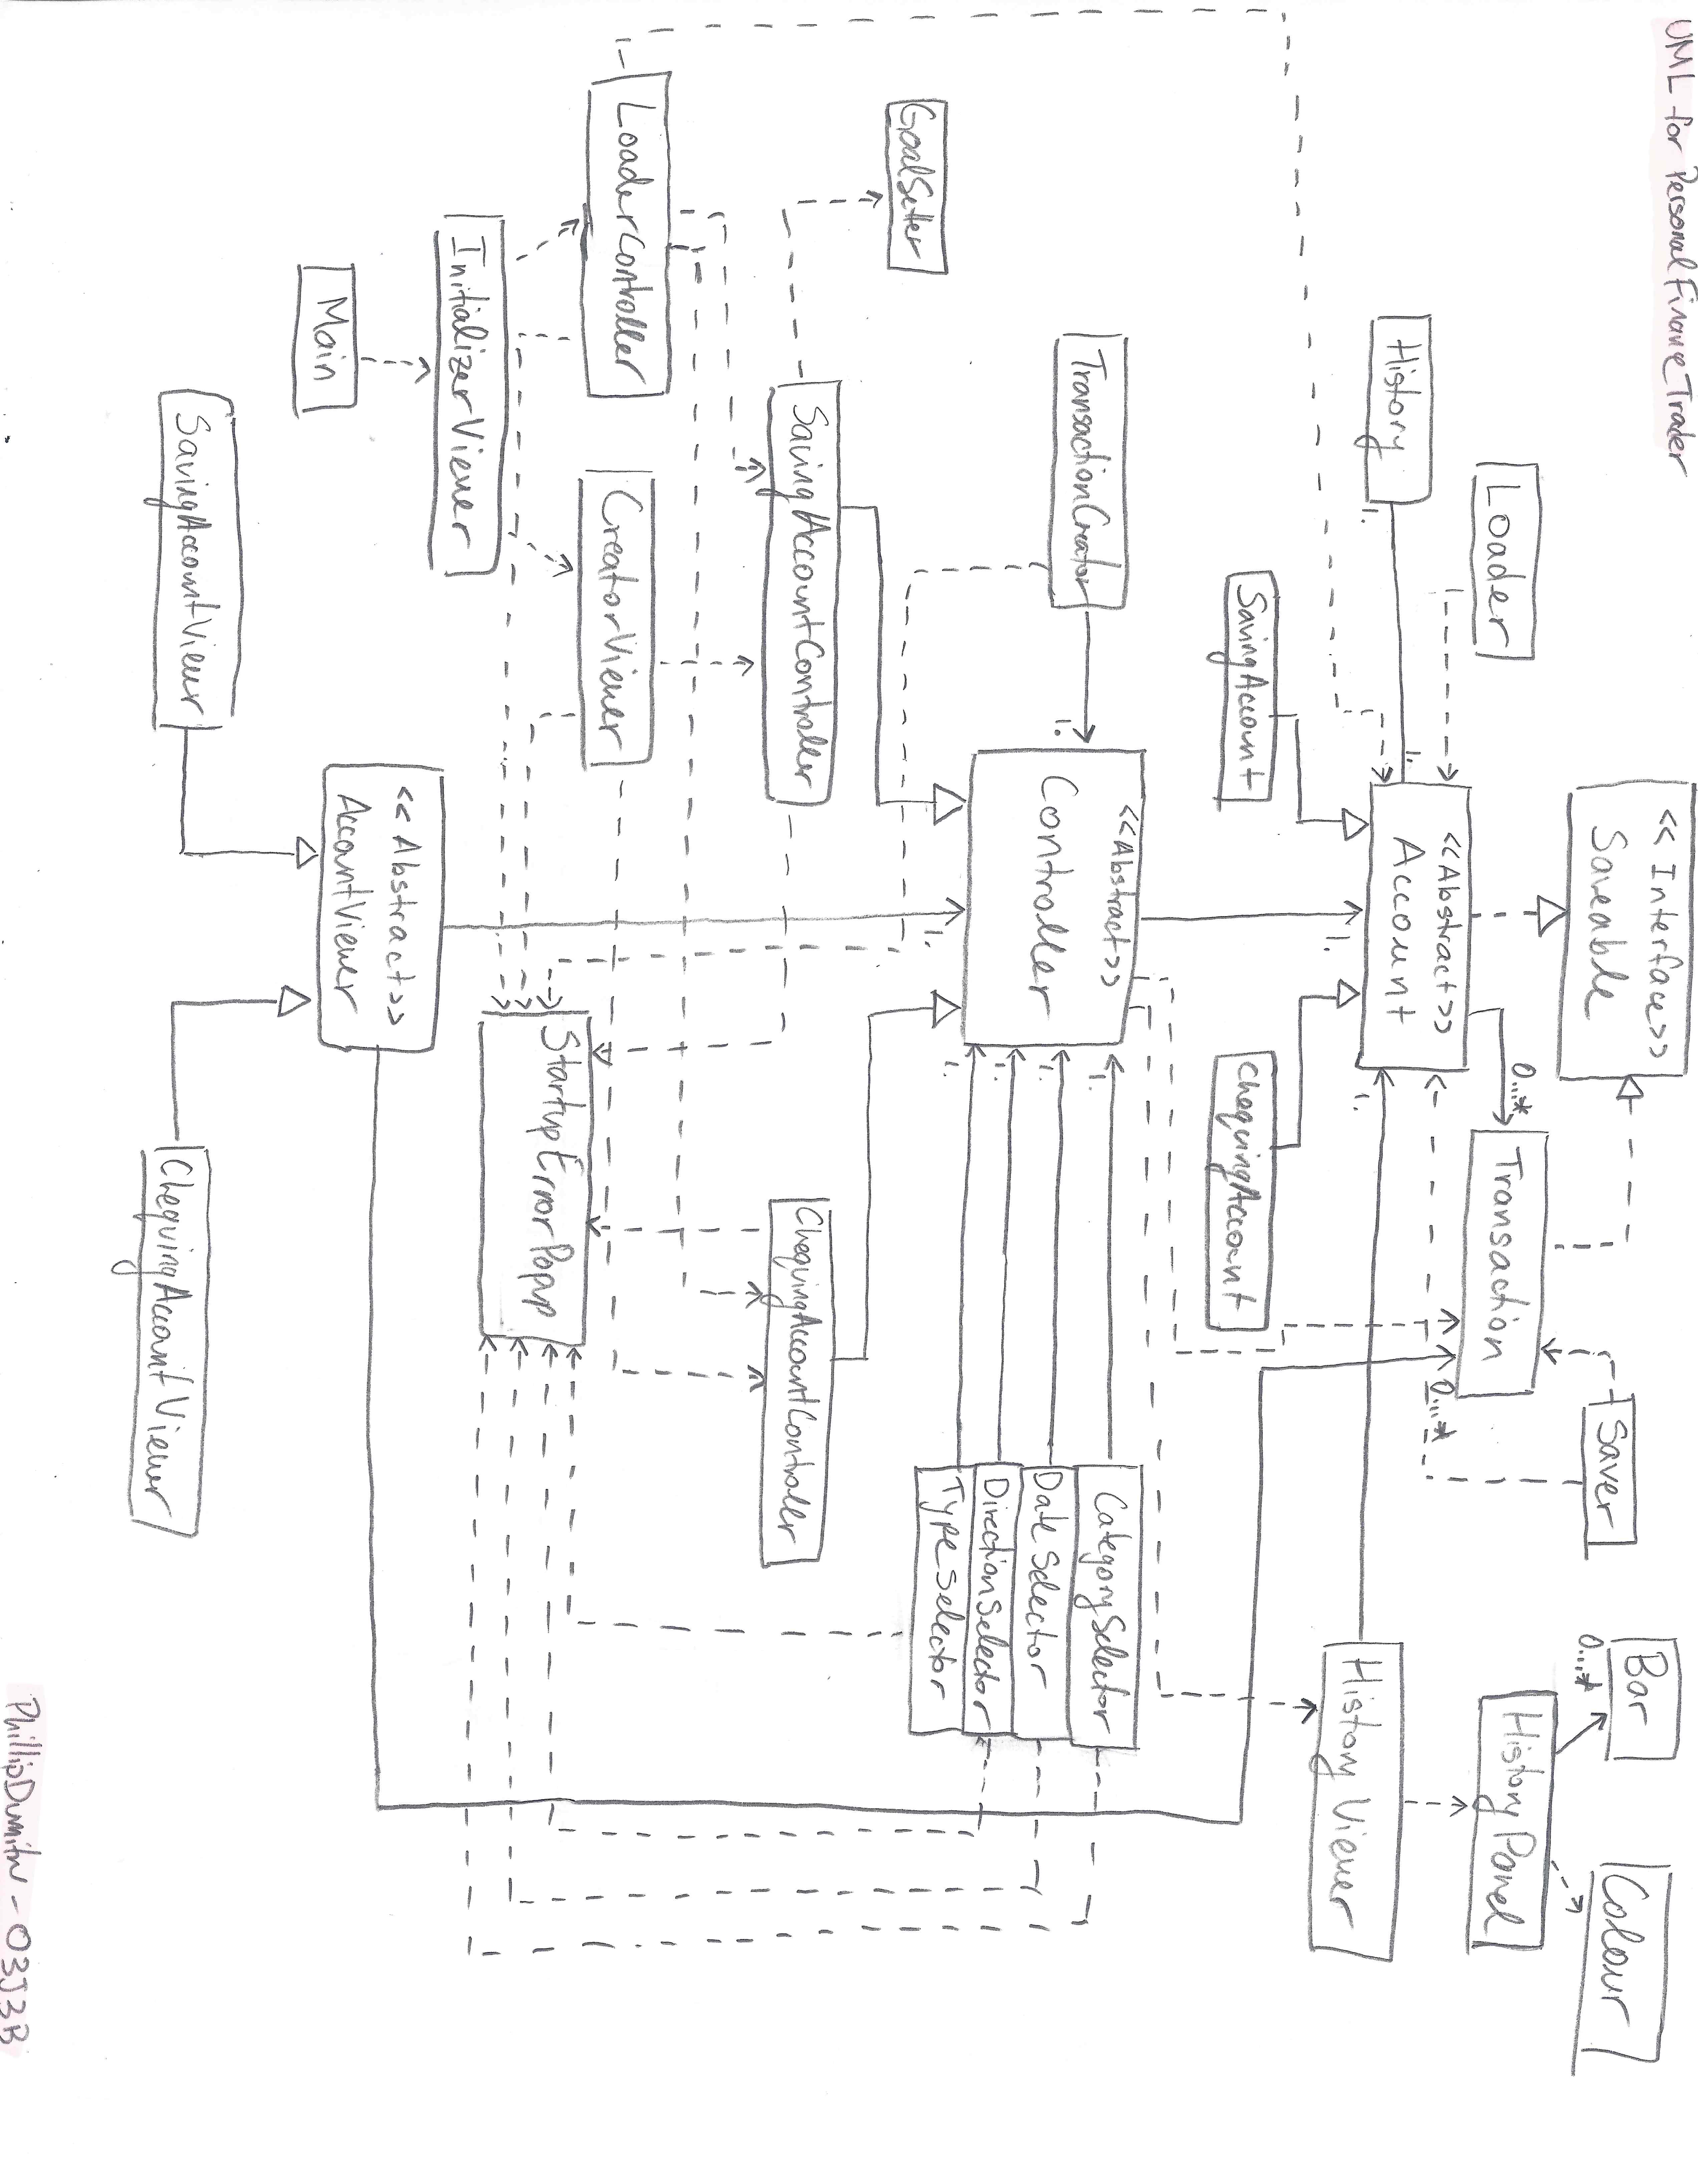 UML for Personal Finance Trader
<< Interface >>
Saveable
Saver
Bar
0...*
Colour
Loader
0...*
Transaction
History Panel
<<Abstract>>
Account
0...*
History
1.
1.
1.
1.
History Viewer
SavingAccount
ChequingAccount
TransactionCreator
1.
<<Abstract>>
Controller
1.
1.
1.
1.
CategorySelector
Date Selector
DirectionSelector
Type Selector
1.
GoalSetter
SavingAccountController
ChequingAccountController
LoaderController
CreatorViewer
Startup Error Popup
InitializerViewer
Main
<< Abstract>>
AccountViewer
SavingAccountViewer
ChequingAccountViewer
PhillipDumitru - O3J3B